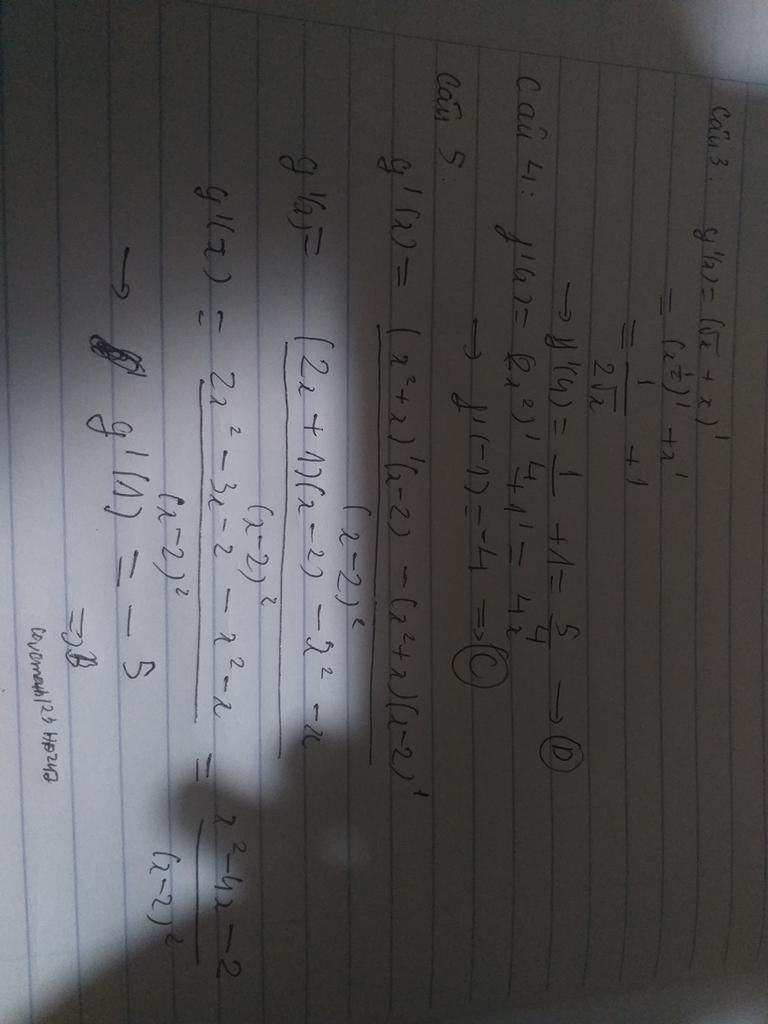 Câu 3: y'(x) = (√x + x)'
= (x^{1/2})' + x'
= 1/(2√x) + 1
→ y'(4) = 1/4 + 1 = 5/4 → (D)
Câu 4: y'(x) = (2x²)' + 1' = 4x
→ y'(-1) = -4 ⇒ (C)
Câu 5:
y'(x) = ((x²+x)'(x-2) - (x²+x)(x-2)')/(x-2)²
y'(x) = ((2x+1)(x-2) - x² - x)/(x-2)²
y'(x) = (2x² - 3x - 2 - x² - x)/(x-2)² = (x² - 4x - 2)/(x-2)²
→ y'(1) = -5
⇒ B